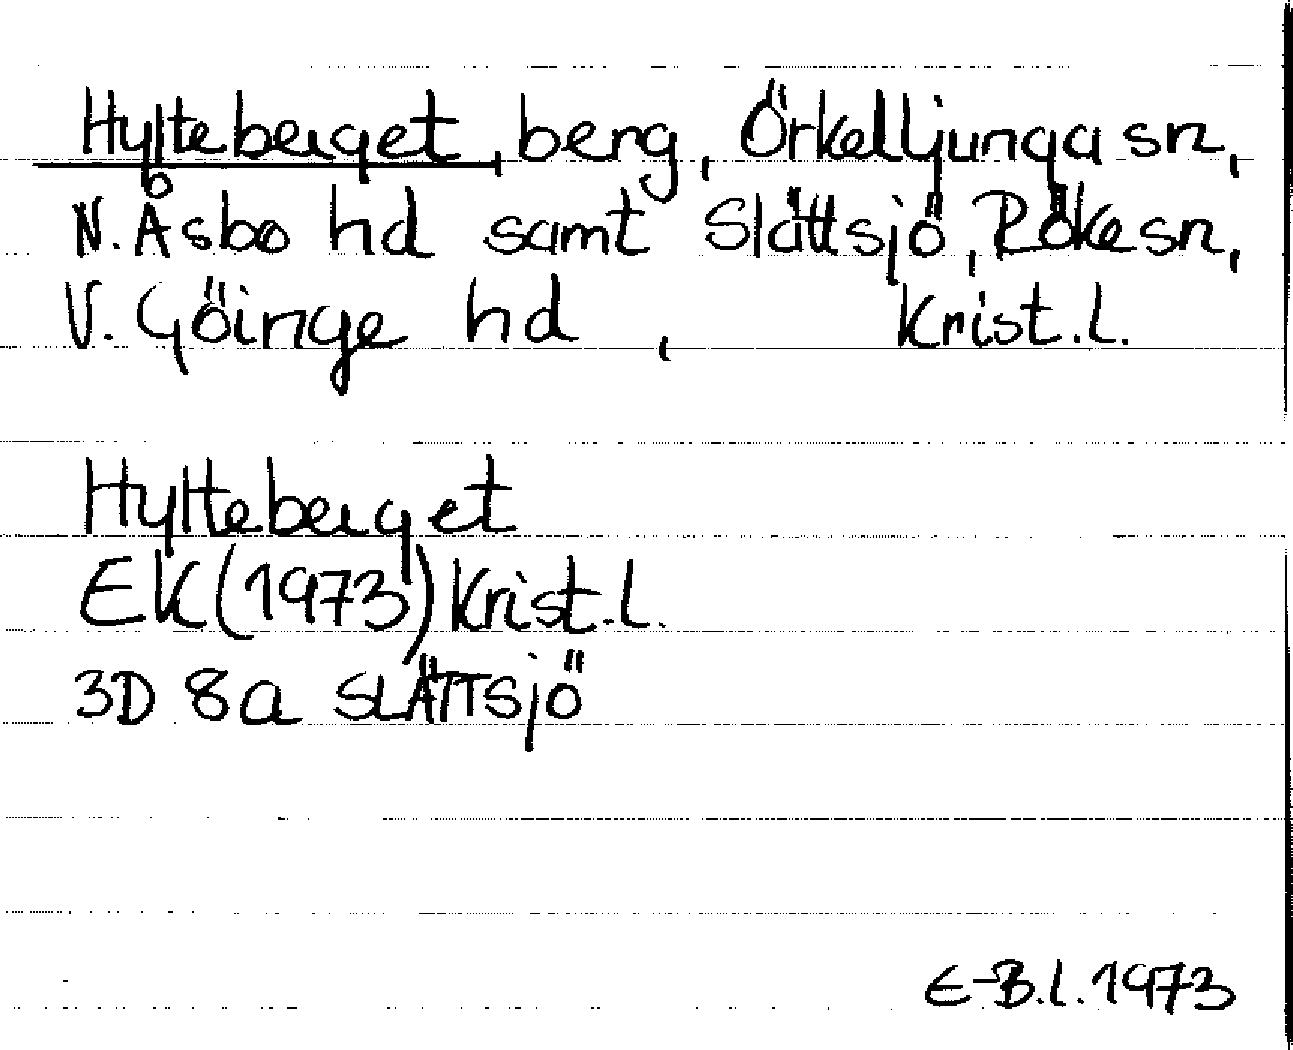 Hylteberget, berg, Örkelljunga sn,
N. Åsbo hd samt Slättsjö, Röke sn,
V. Göinge hd, Krist. l.
Hylteberget
EK (1973) Krist. l.
3D 8a SLÄTTSJÖ
E-B.L. 1973